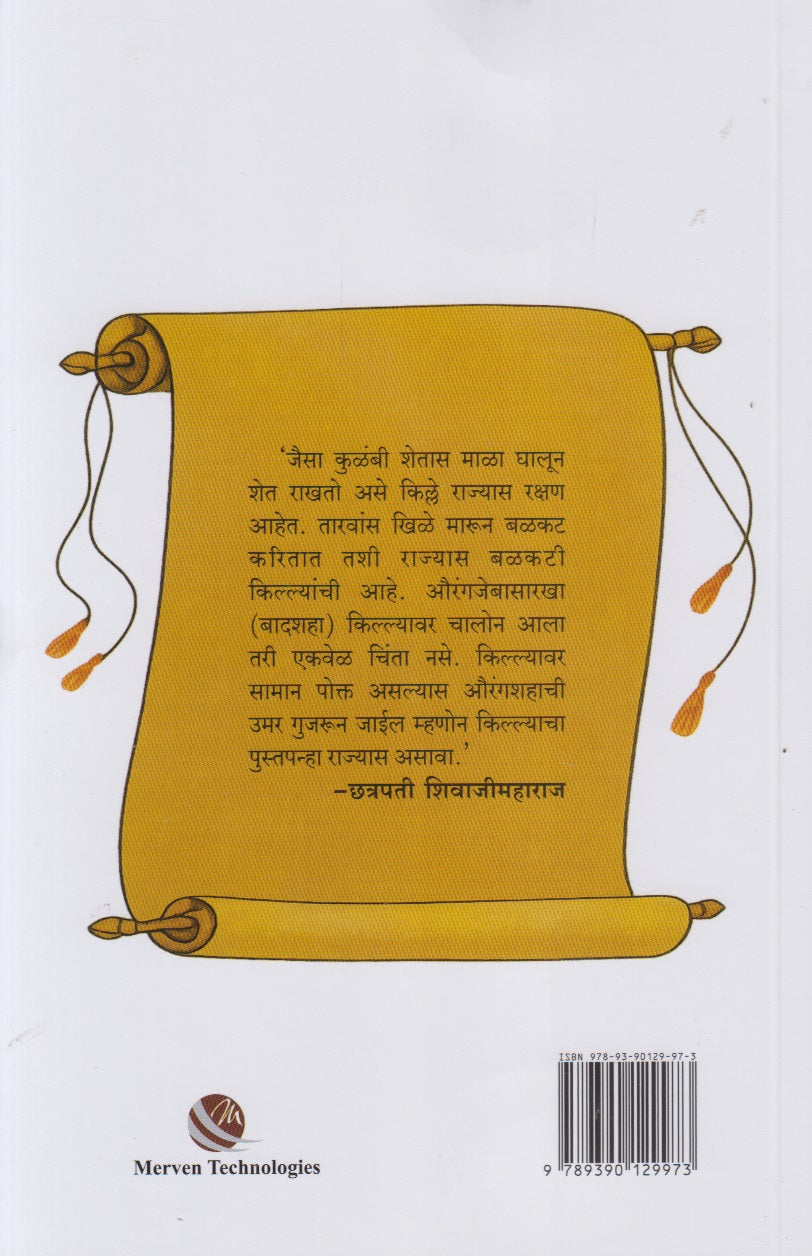 ‘जैसा कुळंबी शेतास माळा घालून
शेत राखतो असे किल्ले राज्यास रक्षण
आहेत. तारवांस खिळे मारून बळकट
करितात तशी राज्यास बळकटी
किल्ल्यांची आहे. औरंगजेबासारखा
(बादशहा) किल्ल्यावर चालोन आला
तरी एकवेळ चिंता नसे. किल्ल्यावर
सामान पोक्त असल्यास औरंगशहाची
उमर गुजरून जाईल म्हणोन किल्ल्याचा
पुस्तपन्हा राज्यास असावा.’
–छत्रपती शिवाजीमहाराज
ISBN 978-93-90129-97-3
9 789390 129973
M
Merven Technologies